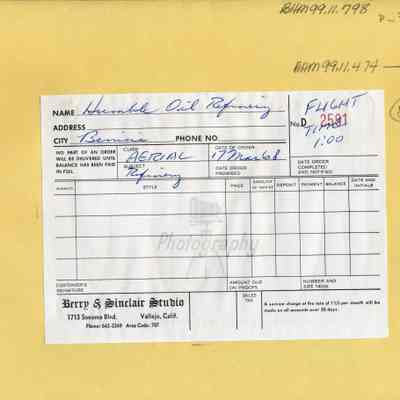 BHM99.11.798
BHM99.11.474
NAME Humble Oil Refinery
FLIGHT
No. D 2591
TIME
1:00
ADDRESS
CITY Benicia PHONE NO.
NO PART OF AN ORDER WILL BE DELIVERED UNTIL BALANCE HAS BEEN PAID IN FULL
CLASS AERIAL
DATE OF ORDER 17 Mar 68
SUBJECT Refinery
DATE ORDER REQUESTED
DATE ORDER COMPLETED AND NOTIFIED
NUMBER STYLE PRICE AMOUNT OF ORDER DEPOSIT PAYMENT BALANCE DATE AND INITIALS
Photography
CUSTOMER'S SIGNATURE
AMOUNT DUE ON PROOFS
NUMBER AND SIZE NEGS.
Berry & Sinclair Studio
1713 Sonoma Blvd. Vallejo, Calif.
Phone: 642-3369 Area Code: 707
SALES TAX
A service charge at the rate of 1½% per month will be made on all accounts over 30 days.